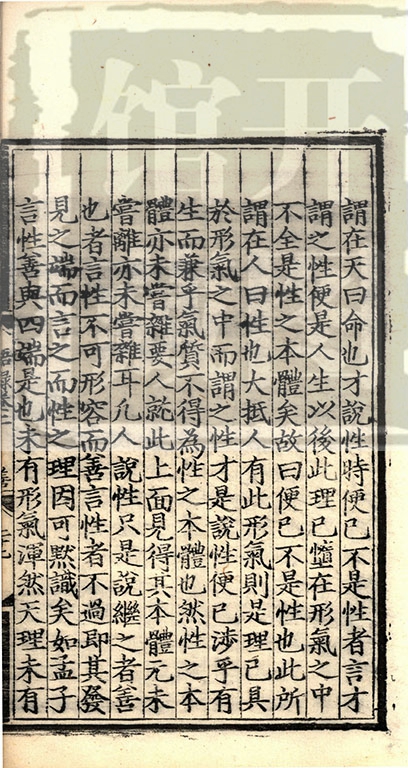 謂在天曰命也才說性時便已不是性者言才
謂之性便是人生以後此理已墮在形氣之中
不全是性之本體矣故曰便已不是性也此所
謂在人曰性也大抵人有此形氣則是理已具
於形氣之中而謂之性才是說性便已涉乎有
生而兼乎氣質不得為性之本體也然性之本
體亦未嘗雜要人就此上面見得其本體元未
嘗離亦未嘗雜耳凡人說性只是說繼之者善
也者言性不可形容而善言性者不過即其發
見之端而言之而性之理因可默識矣如孟子
言性善與四端是也未有形氣渾然天理未有